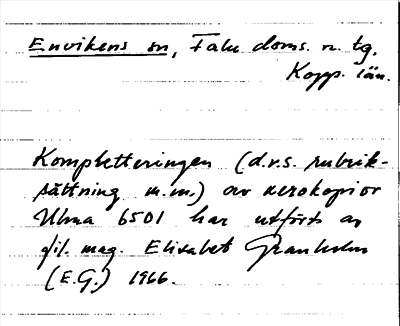 Envikens sn, Falu doms. n. tg,
Kopp. län.
Kompletteringen (d.v.s. rubrik-
sättning m.m.) av xerokopior
Ulma 6501 har utförts av
fil. mag. Elisabet Granholm
(E.G.) 1966.